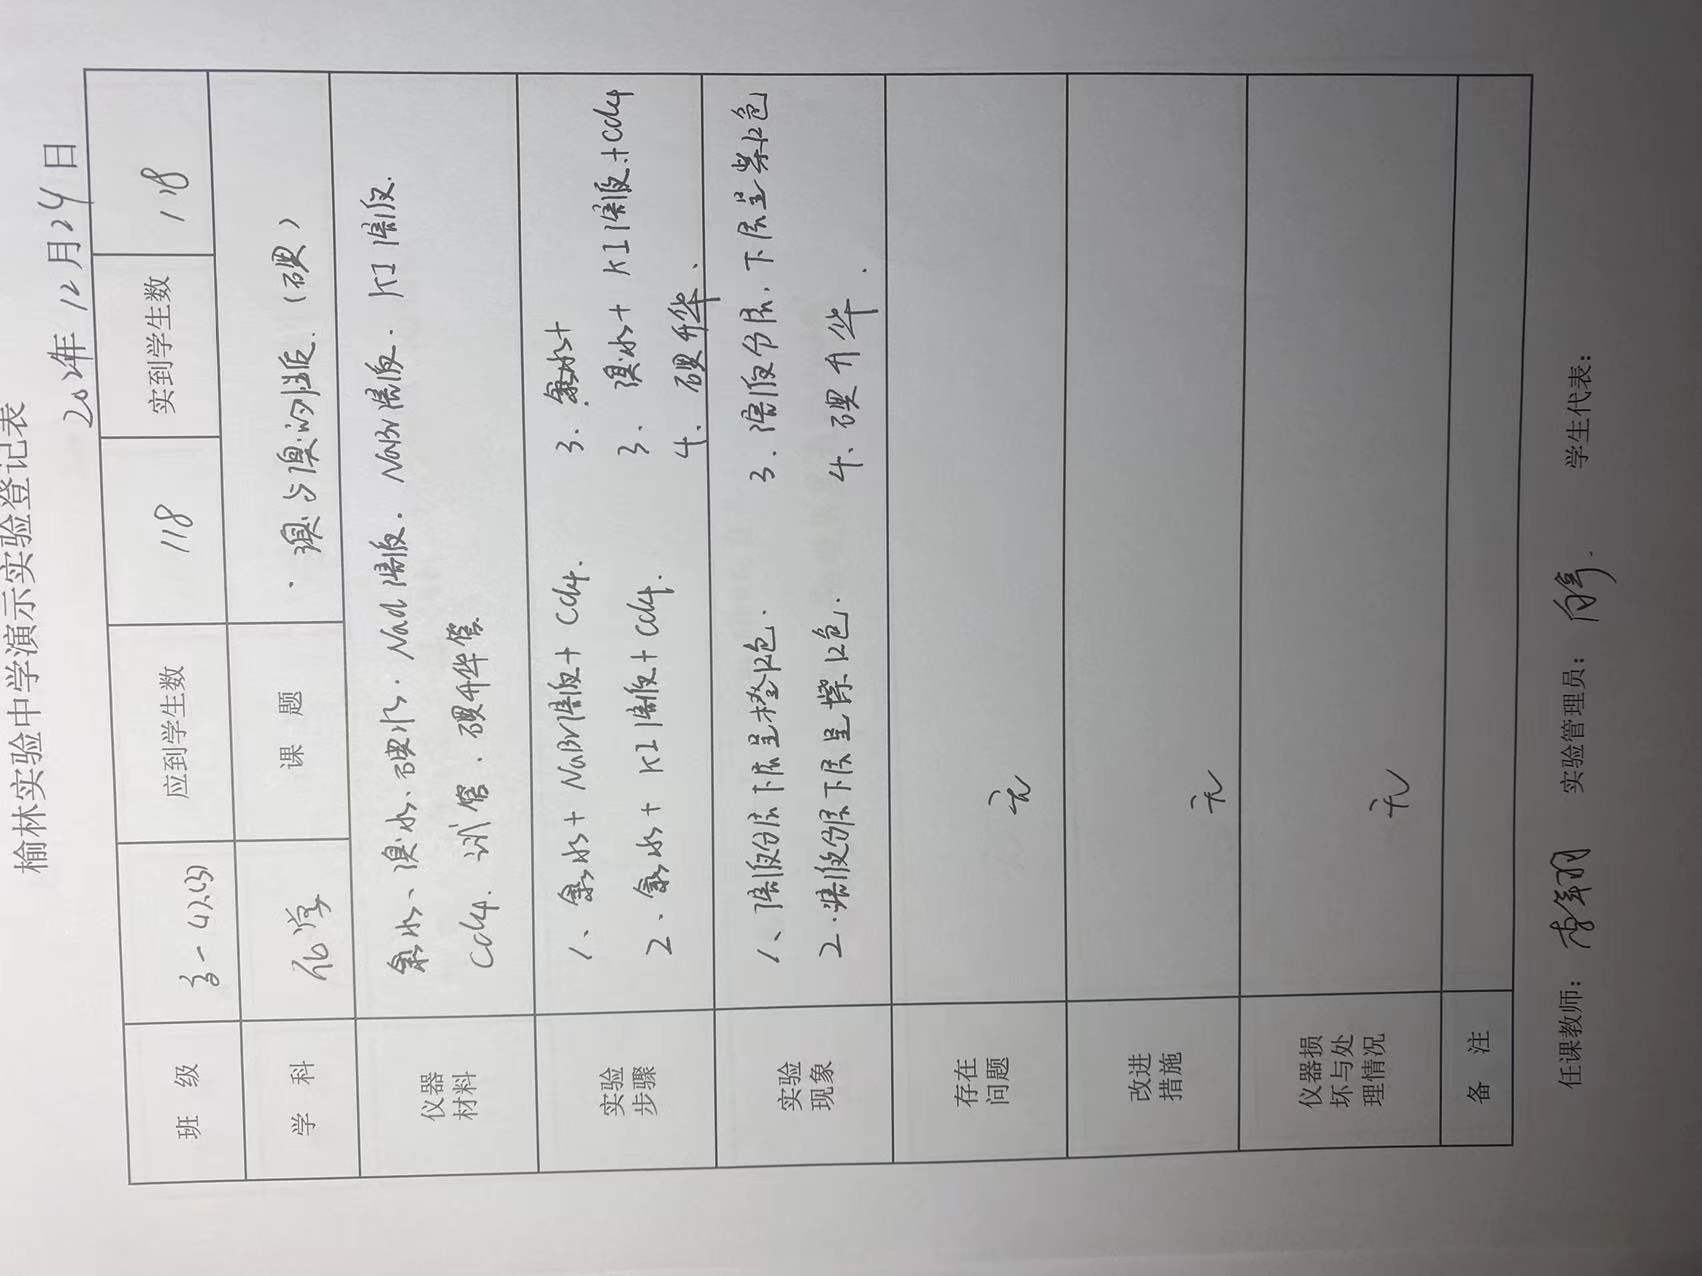 榆林实验中学演示实验登记表
年 12月24日
班 级 高一 应到学生数 118 实到学生数 118
学 科 化学 课 题 溴与溴的性质.(碘)
仪器
材料
氯水、溴水、碘水、NaCl溶液、NaBr溶液、KI溶液.
CCl4、试管、碘升华管
实验
步骤
1、氯水+NaBr溶液+CCl4. 3.氯水+
2、氯水+KI溶液+CCl4. 3、溴水+KI溶液+CCl4
4、碘升华、
实验
现象
1、溶液分层下层呈橙红色. 3、溶液分层,下层呈紫红色
2、溶液分层下层呈紫红色. 4、碘升华.
存在
问题
无
改进
措施
无
仪器损
坏与处
理情况
无
备 注
任课教师: 实验管理员: 学生代表: